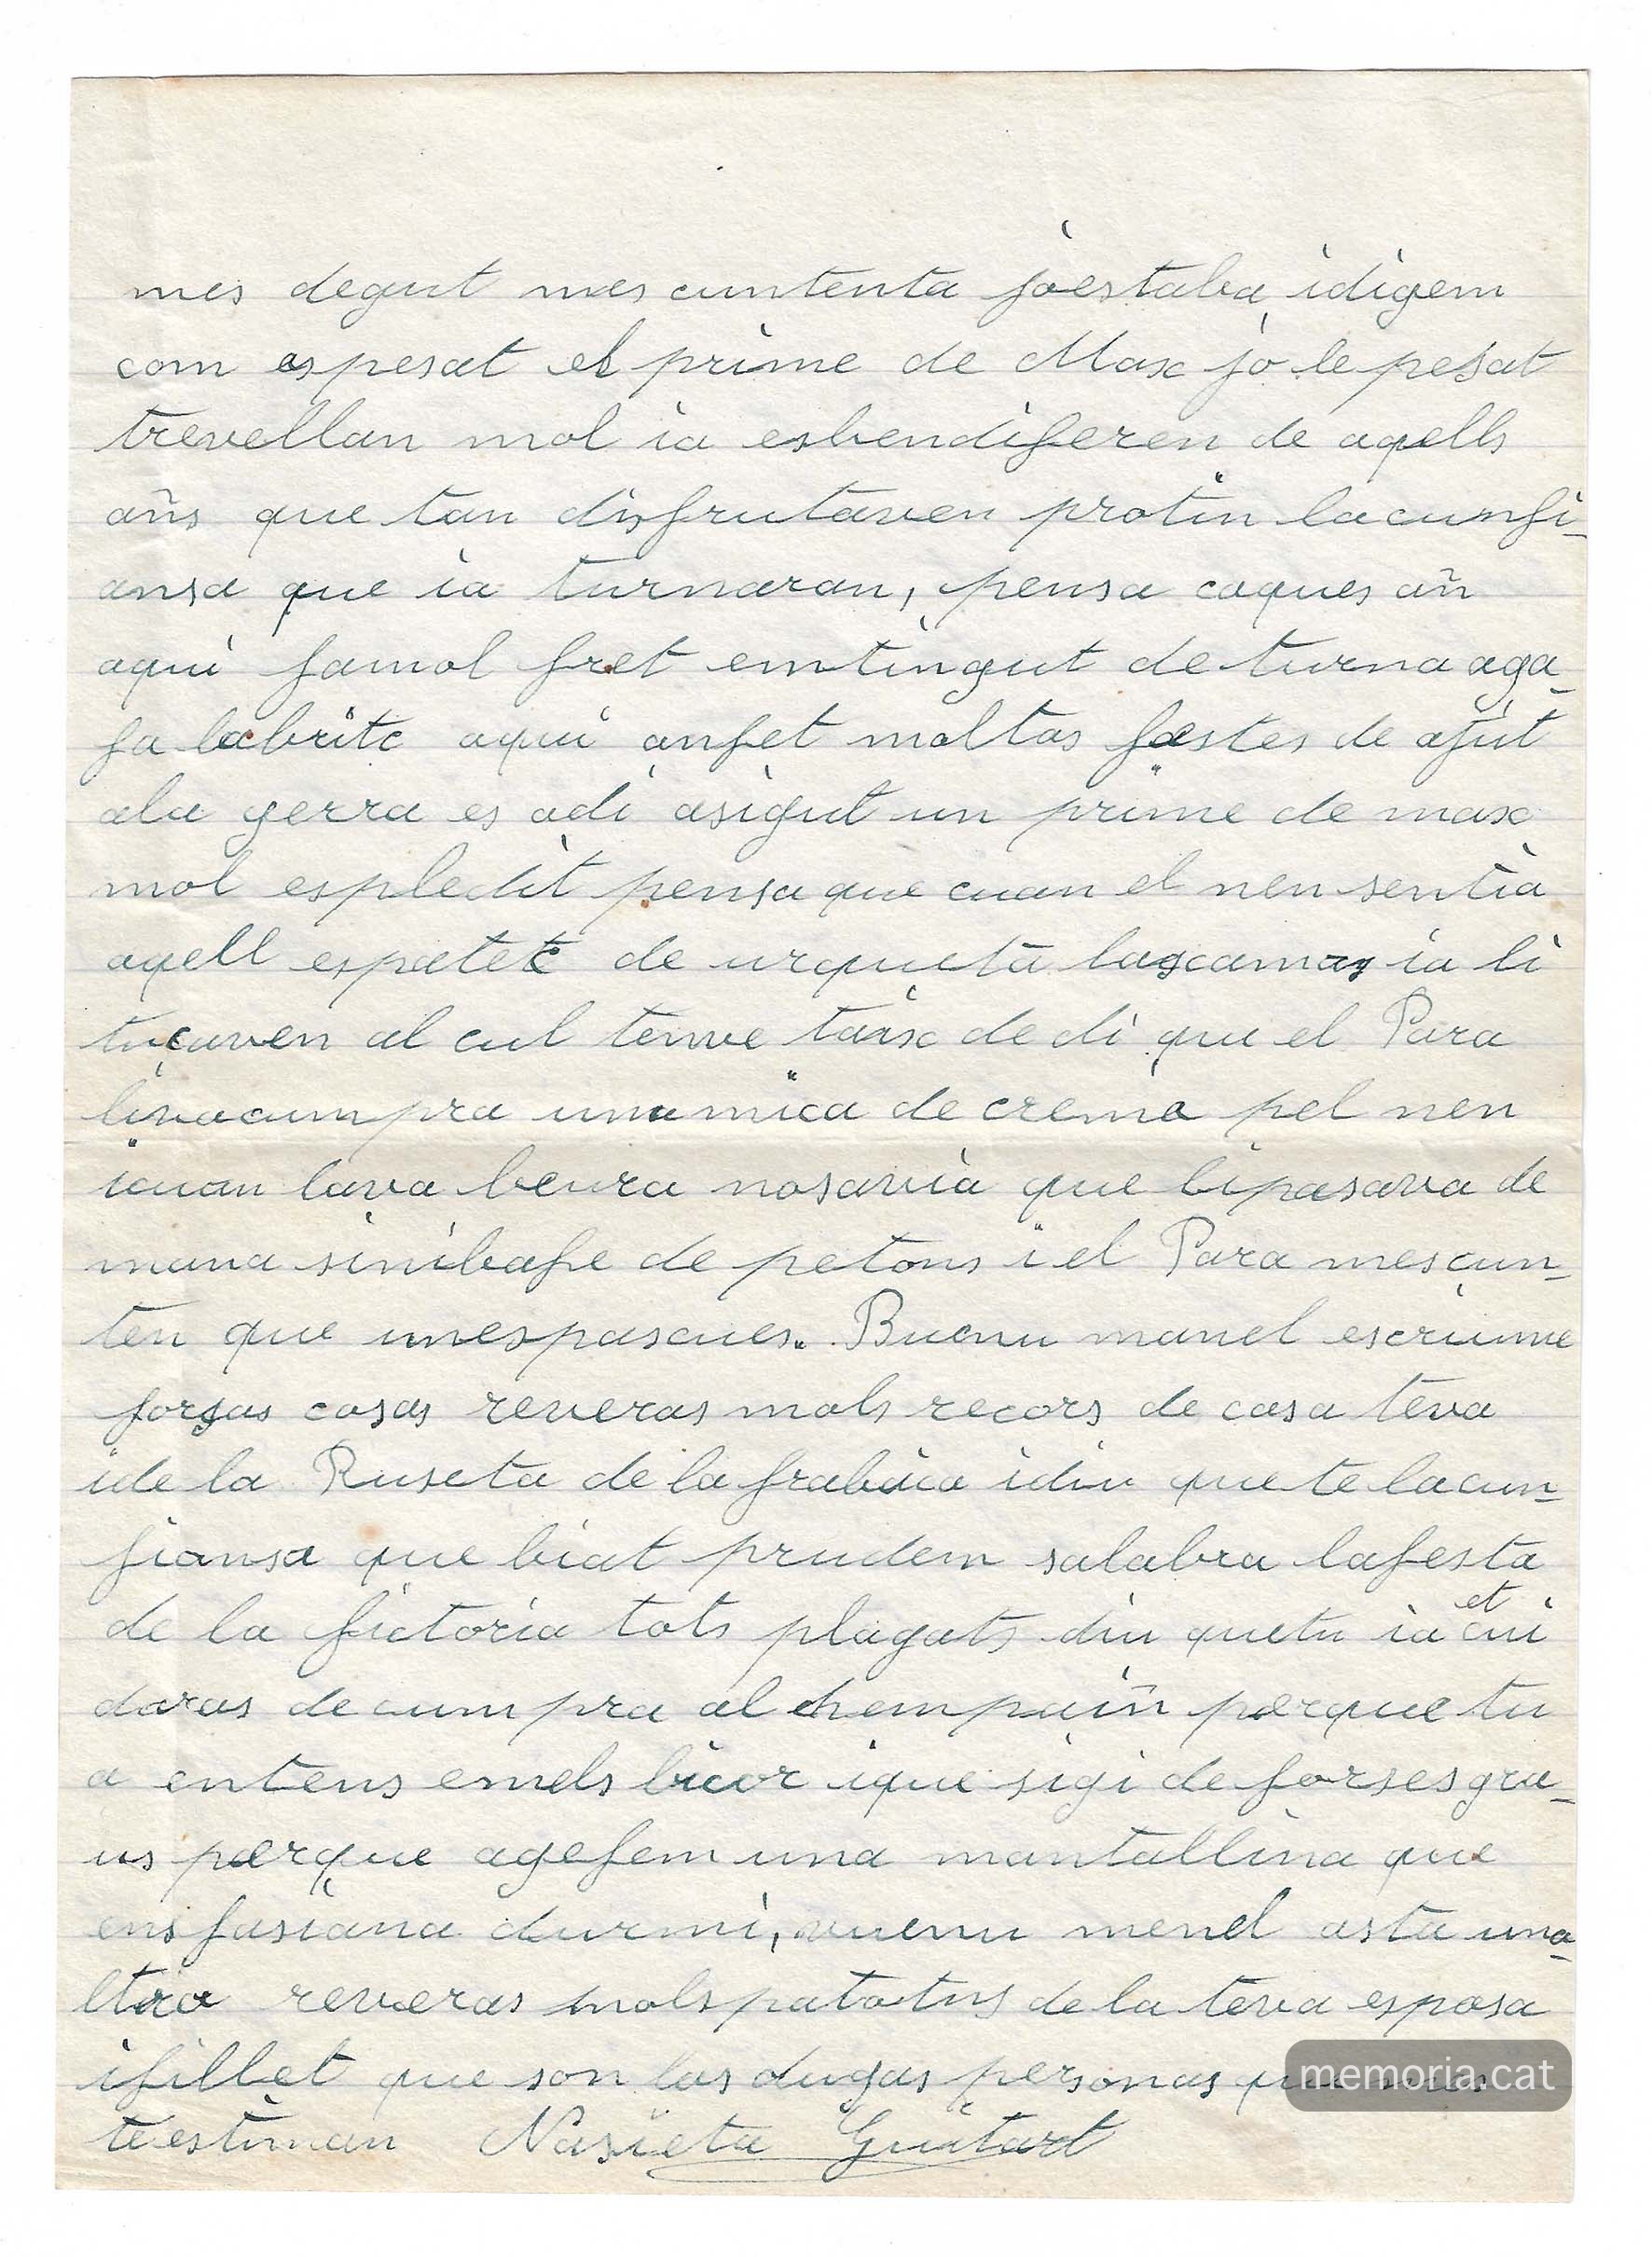 mes degut mes cuntenta joestaba, idigem
com as pesat el prime de Max jo le pesat
trevellan mol ia esbendiferen de aqells
añs que tan disfrutaven protin lacunfi-
ansa que ia turnaran, pensa caques añ
aqui famol fret emtingut de turna aga-
fa labritc aqui anfet moltas festes de ajut
ala gerra es adi asigut un prime de max
mol espledit pensa que cuan el nen sentia
aqell espetec de urqueta lascamas ia li
tucaven al cul temve tarx de di que el Para
livacumpra unamica de crema pel nen
icuan lava beura nosavia que lipasava de
mana sinibafe de petons i el Para mescun-
ten que unespascues. Buenu manel escriume
forsas cosas reveras mols recors de casa teva
ide la Ruseta de la frabica idiu que te lacun-
fiansa que biat prudem salabra lafesta
de la fictoria tots plagats diu quetu ia et cui
daras decumpra al chempain perque tu
a entens emels licor ique sigi de forses gra-
us perque agefem una mantallina que
ens fasiana durmi, vuenu menel asta una-
ltra reveras mols patotns de la teva esposa
ifillet que son las dugas personas que mes
testiman Nasieta Guitart
memoria.cat